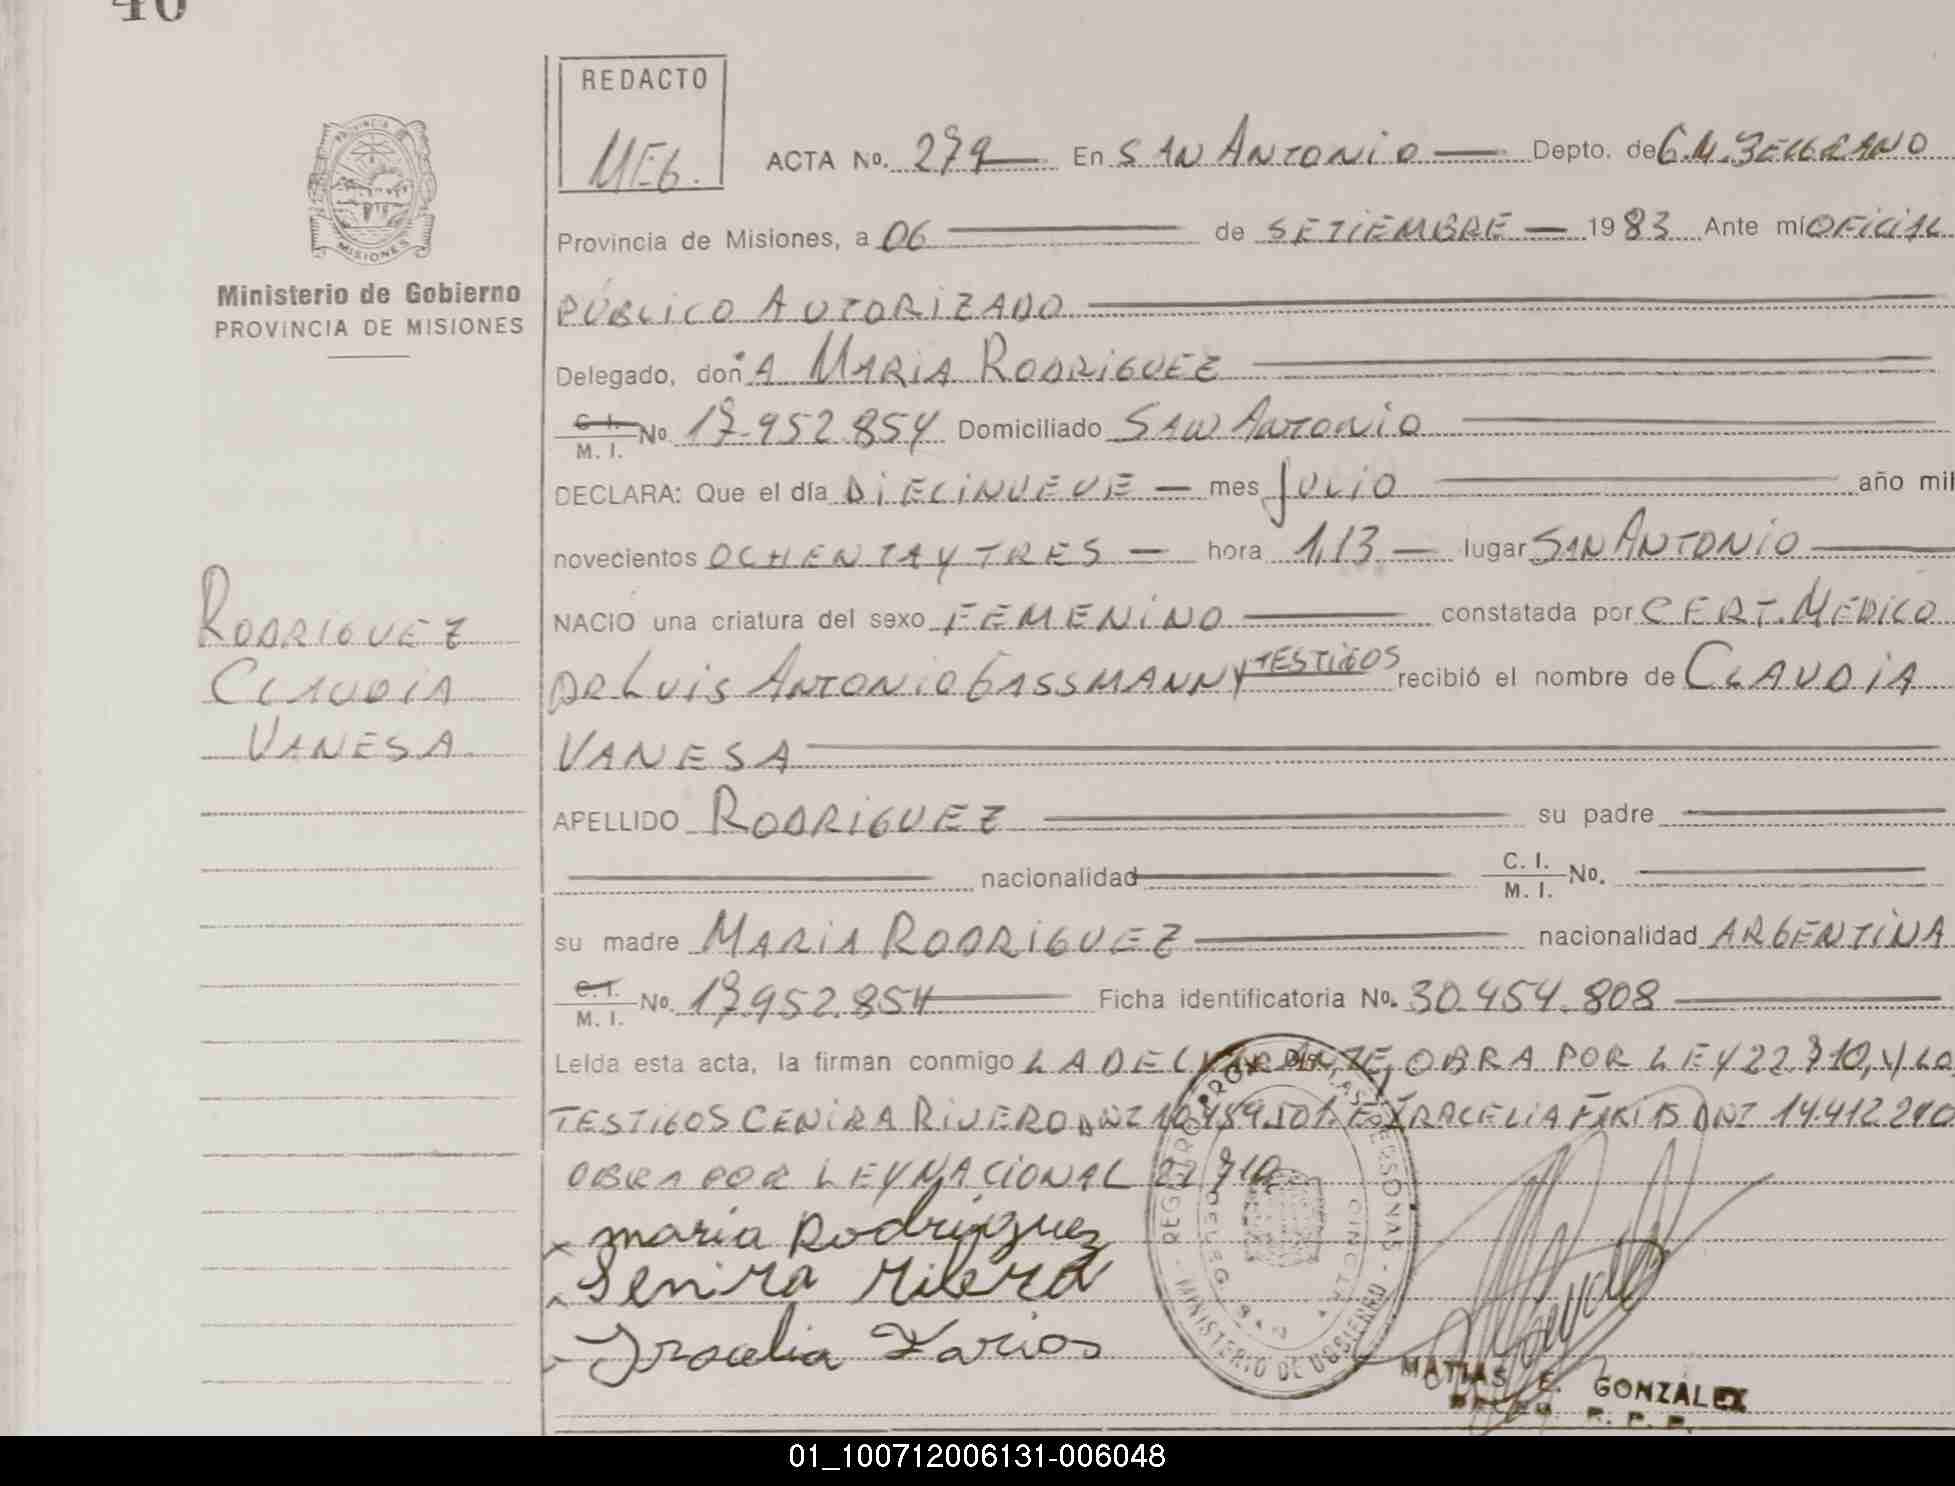 40
REDACTO
MEG.
ACTA No. 279 En SAN ANTONIO Depto. de G.M. BELGRANO
PROVINCIA DE MISIONES
Ministerio de Gobierno
PROVINCIA DE MISIONES
Provincia de Misiones, a 06 de SETIEMBRE 1983 Ante mí OFICIAL
PÚBLICO AUTORIZADO
Delegado, doñA MARIA RODRIGUEZ
C. I. / M. I. No 17.952.854 Domiciliado SAN ANTONIO
DECLARA: Que el día DIECINUEVE mes JULIO año mil
novecientos OCHENTA Y TRES hora 1,13 lugar SAN ANTONIO
NACIO una criatura del sexo FEMENINO constatada por CERT. MEDICO
DR LUIS ANTONIO GASSMANN Y TESTIGOS recibió el nombre de CLAUDIA
VANESA
RODRIGUEZ
CLAUDIA
VANESA
APELLIDO RODRIGUEZ su padre
nacionalidad C. I. / M. I. No.
su madre MARIA RODRIGUEZ nacionalidad ARGENTINA
C. I. / M. I. No. 17.952.854 Ficha identificatoria No. 30.454.808
Leída esta acta, la firman conmigo LA DECLARANTE, OBRA POR LEY 22.710, Y LO
TESTIGOS CENIRA RIVERO DNI E IRACELIA FARIAS DNI 14.412.240
OBRA POR LEY NACIONAL 22.710
maria Rodriguez
Senira Rivero
Iracelia Farios
REGISTRO PROV. DE LAS PERSONAS - MINISTERIO DE GOBIERNO -
DELEG. SAN ANTONIO
MATIAS E. GONZALEZ
01_100712006131-006048